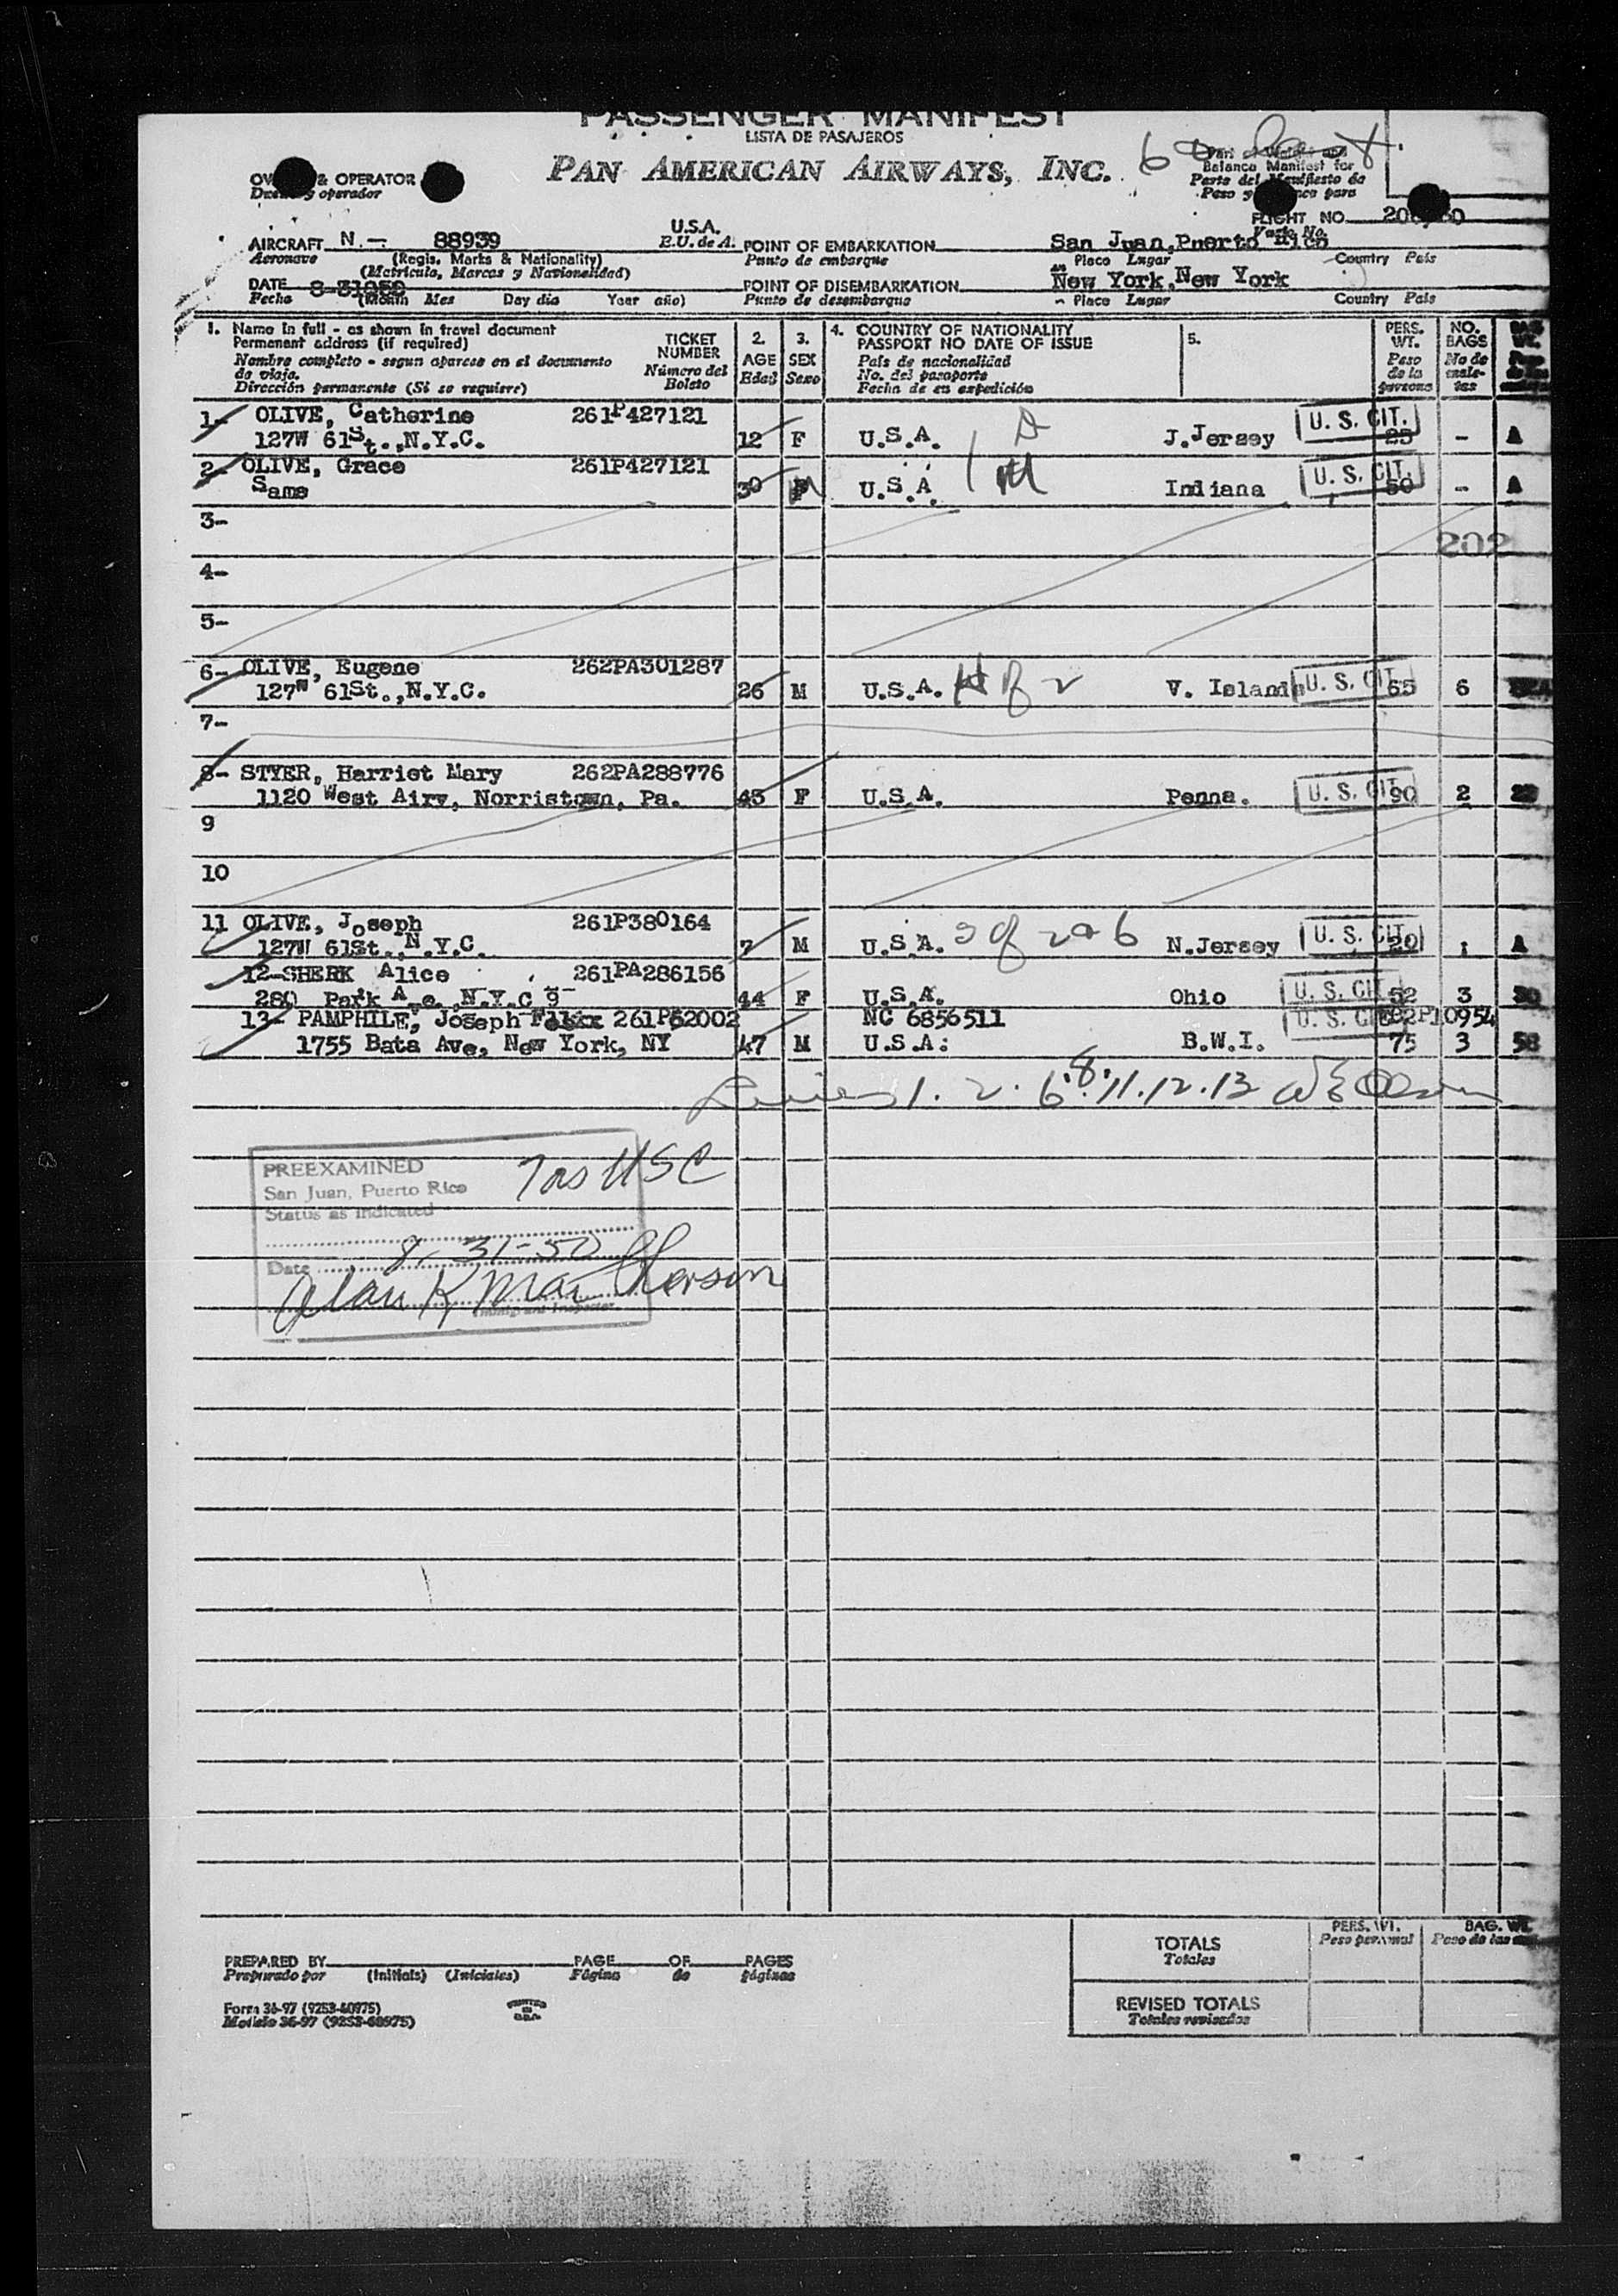 PASSENGER MANIFEST
LISTA DE PASAJEROS
PAN AMERICAN AIRWAYS, INC.
Part of Weight and
Balance Manifest for
Parte del Manifiesto de
Peso y para
& OPERATOR
operador
FLIGHT NO.
Vuelo No.
AIRCRAFT N.-. 88939 U.S.A.
Aeronave (Regis. Marks & Nationality) E.U. de A.
(Matrícula, Marcas y Nacionalidad)
POINT OF EMBARKATION San Juan, Puerto Rico
Punto de embarque Place Lugar Country País
DATE
Fecha (Month Mes Day día Year año)
POINT OF DISEMBARKATION New York, New York
Punto de desembarque Place Lugar Country País
1. Name in full - as shown in travel document
Permanent address (if required)
Nombre completo - segun aparece en el documento
de viaje.
Dirección permanente (Si se requiere)
TICKET
NUMBER
Número del
Boleto
2.
AGE
Edad
3.
SEX
Sexo
4. COUNTRY OF NATIONALITY
PASSPORT NO DATE OF ISSUE
País de nacionalidad
No. del pasaporte
Fecha de su expedición
5.
PERS.
WT.
Peso
de la
persona
NO.
BAGS
No de
male-
tas
1- OLIVE, Catherine 261P427121 U. S. CIT.
127W 61St.,N.Y.C. 12 F U.S.A. D J.Jersey 25 - A
2- OLIVE, Grace 261P427121 U. S. CIT.
Same 30 U.S.A. 1 M Indiana 50 - A
3-
202
4-
5-
6- OLIVE, Eugene 262PA301287
127W 61St.,N.Y.C. 26 M U.S.A. H of 2 V. Islands U. S. CIT. 65 6
7-
8- STYER, Harriet Mary 262PA288776
1120 West Airy, Norristown, Pa. 45 F U.S.A. Penna. U. S. CIT. 90 2
9
10
11 OLIVE, Joseph 261P380164
127W 61St., N.Y.C. 7 M U.S.A. S of 2 & 6 N.Jersey U. S. CIT. 20 A
12-SHERK Alice 261PA286156
280 Park Ave. N.Y.C 9 44 F U.S.A. Ohio U. S. CIT. 52 3 30
13- PAMPHILE, Joseph 261P62002 NC 6856511 U. S. CIT.
1755 Bata Ave, New York, NY 47 M U.S.A. B.W.I. 75 3 58
Lines 1. 2. 6. 8. 11. 12. 13
PREEXAMINED
San Juan, Puerto Rico
Status as indicated
7 as USC
Date 8-31-50
Immigrant Inspector
TOTALS
Totales
PERS. WT.
Peso personal
BAG. WT.
REVISED TOTALS
Totales revisados
PREPARED BY PAGE OF PAGES
Preparado por (Initials) (Iniciales) Página de páginas
Form 36-97 (9253-60975)
Modelo 36-97 (9253-60975)
PRINTED
IN
U.S.A.